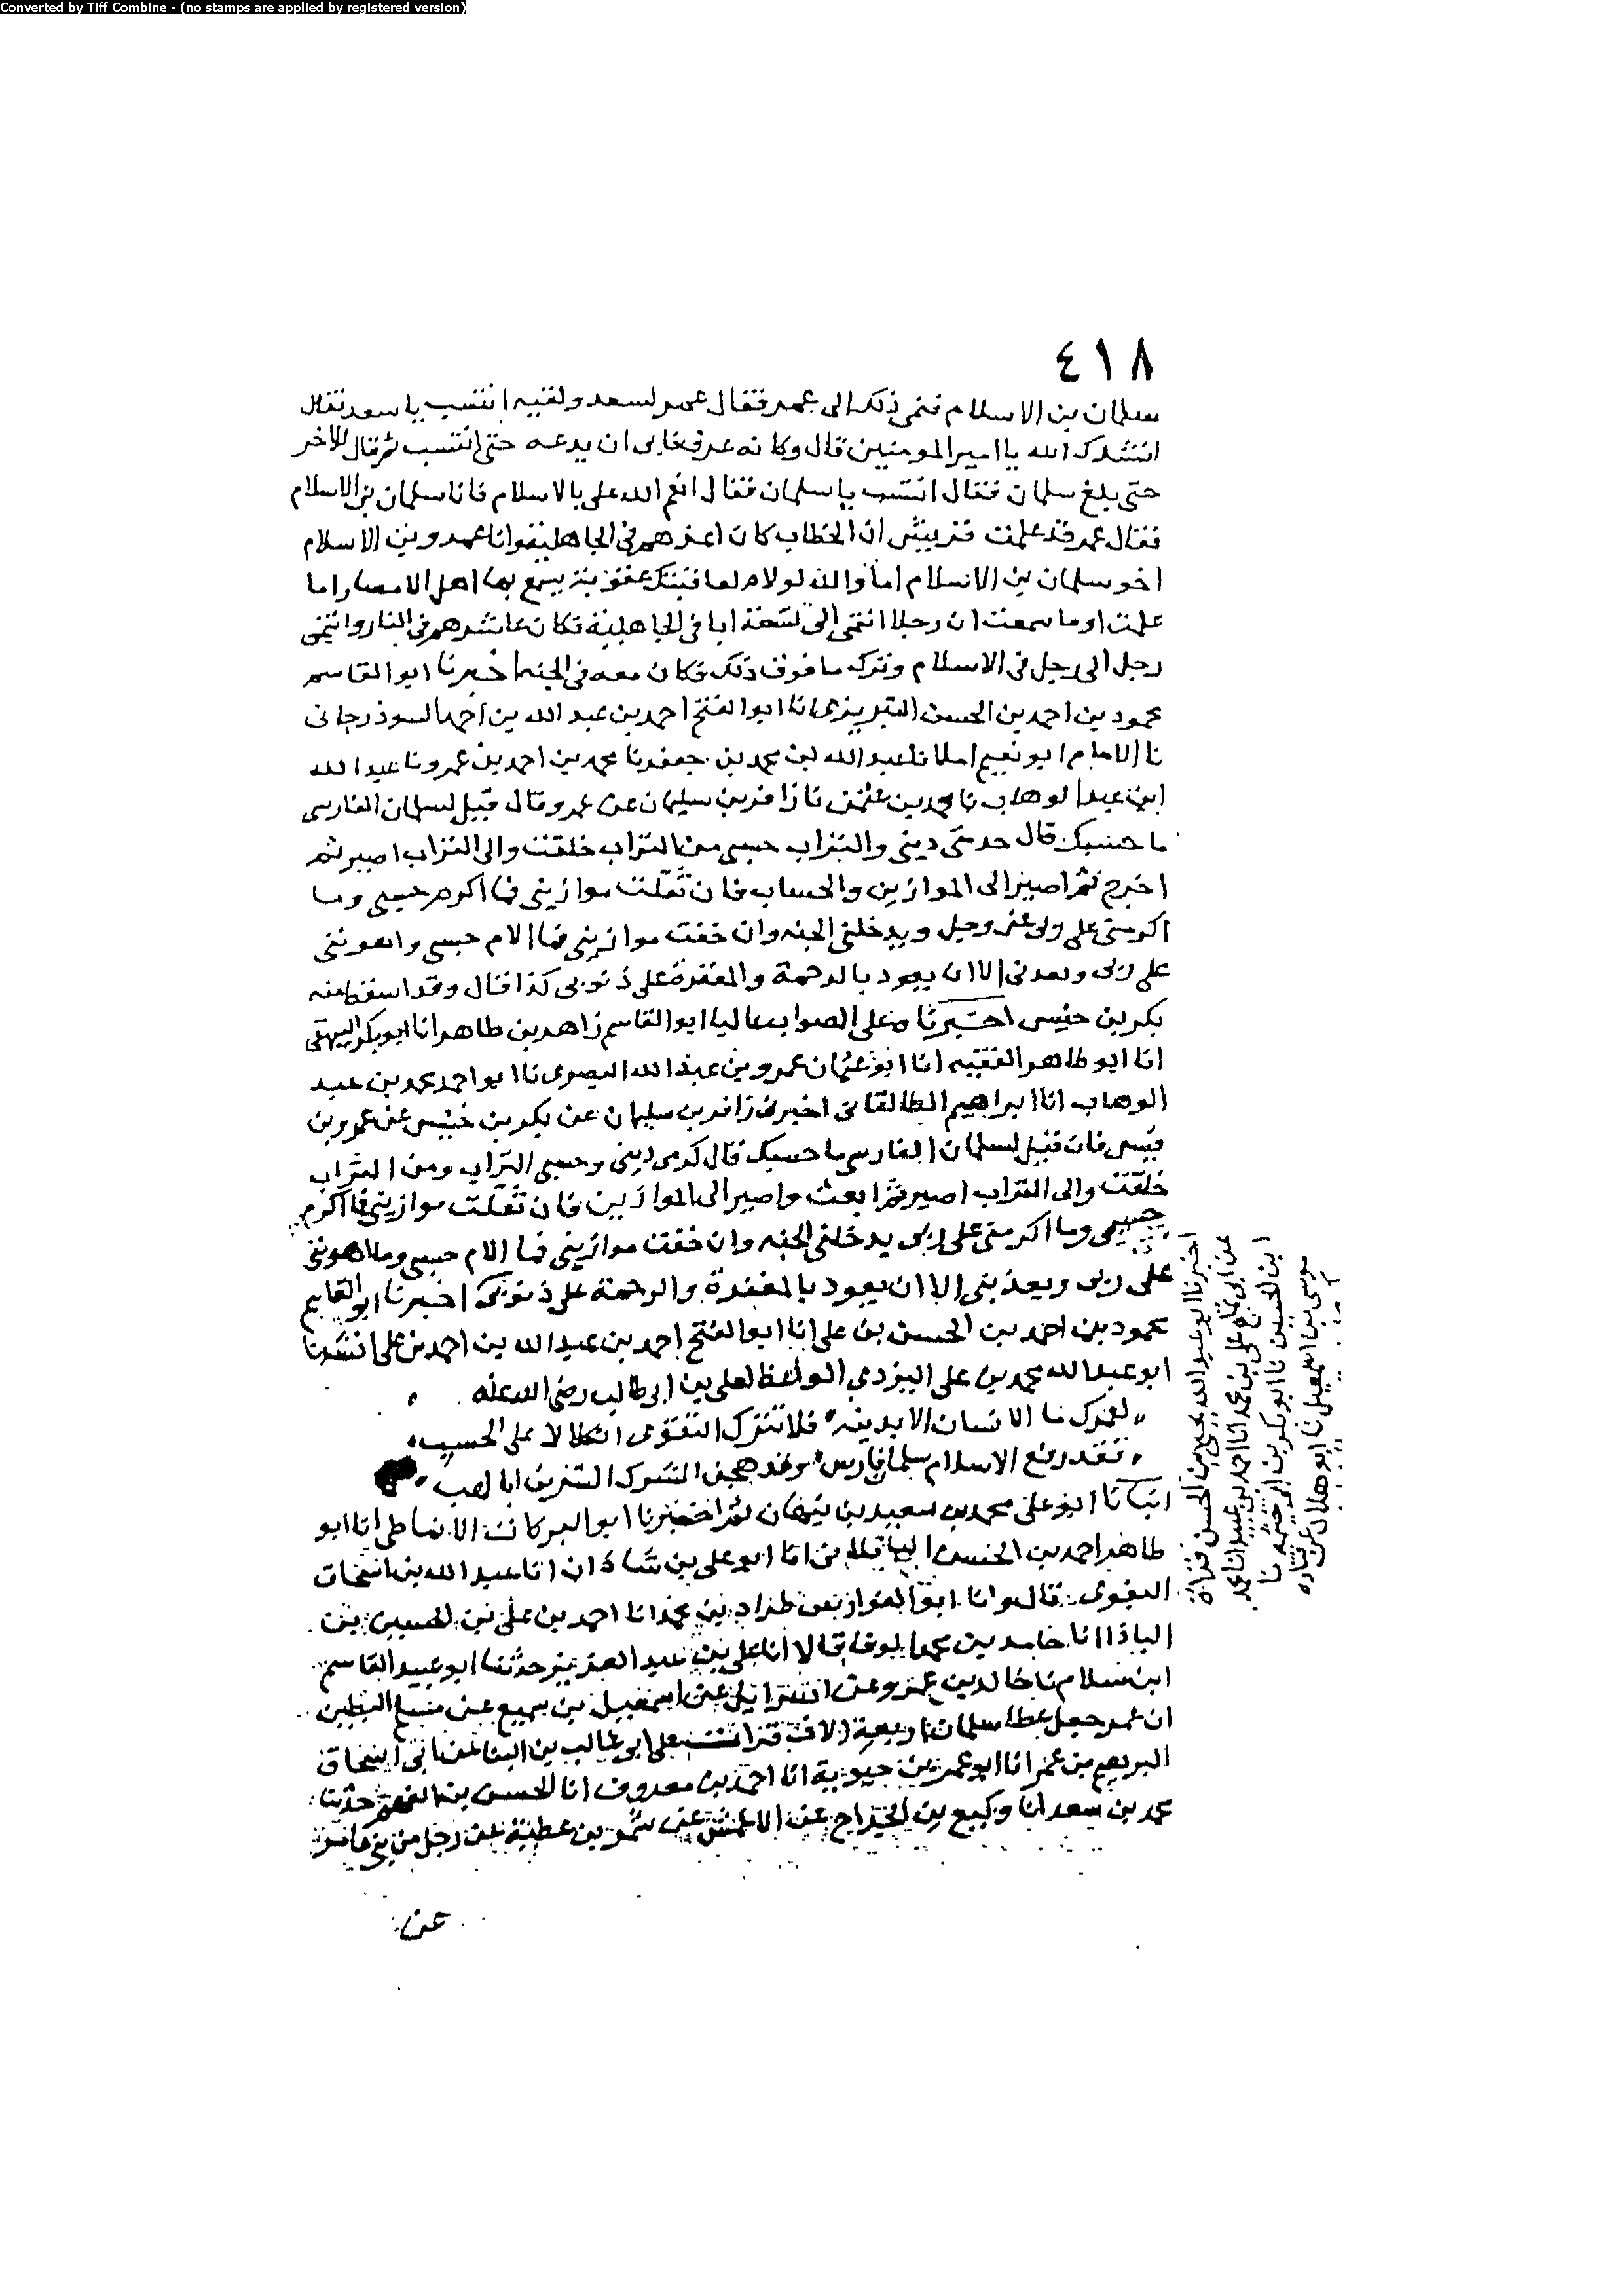 Converted by Tiff Combine - (no stamps are applied by registered version)
٤١٨
سلمان بن الاسلام فنمى ذلك الى عمر فقال عمر لسعد ولقيه انتسب يا سعد فقال
انشدك الله يا امير المومنين قال وكانه عرف فابى ان يدعه حتى انتسب ثم قال للاخر
حتى بلغ سلمان فقال انتسب يا سلمان فقال انعم الله على بالاسلام فانا سلمان بن الاسلام
فقال عمر قد علمت قريش ان الخطاب كان اعزهم فى الجاهلية وانا عمر بن الاسلام
اخو سلمان بن الاسلام اما والله لولا لعاقبتك عقوبة يسمع بها اهل الامصار اما
علمت او ما سمعت ان رجلا انتمى الى تسعة ابا فى الجاهلية فكان عاشرهم فى النار وانتمى
رجل الى رجل فى الاسلام وترك ما فوق ذلك فكان معه فى الجنه اخبرنا ابو القاسم
محمود بن احمد بن الحسن التبريزى انا ابو الفتح احمد بن عبد الله بن احمد السوذرجانى
نا الامام ابو نعيم املا نا عبد الله بن محمد بن جعفر نا محمد بن احمد بن عمرو نا عبد الله
ابن عبد الوهاب نا محمد بن نا زافر بن سليمان عن عمرو قال قيل لسلمان الفارسى
ما حسبك قال كرمى دينى والتراب حسبى من التراب خلقت والى التراب اصير ثم
اخرج ثم اصير الى الموازين والحساب فان ثقلت موازينى فما اكرم حسبى وما
اكرمنى على ربى عز وجل ويدخلنى الجنه وان خفت موازينى فما الام حسبى واهوننى
على ربى ويعذبنى الا ان يعود بالرحمة والمغفرة على ذنوبى كذا قال وقد اسقط منه
بكر بن خنيس اخبرناه على الصواب عاليا ابو القاسم زاهر بن طاهر انا ابو بكر البيهقى
انا ابو طاهر الفقيه انا ابو عثمان عمرو بن عبد الله البصرى نا ابو احمد محمد بن عبد
الوهاب انا ابراهيم الطالقانى اخبرنى زافر بن سليمان عن بكر بن خنيس عن عمرو بن
قيس قال قيل لسلمان الفارسى ما حسبك قال كرمى دينى وحسبى التراب ومن التراب
خلقت والى التراب اصير ثم ابعث واصير الى الموازين فان ثقلت موازينى فما اكرم
حسبى وما اكرمنى على ربى يدخلنى الجنه وان خفت موازينى فما الام حسبى وما اهوننى
على ربى ويعذبنى الا ان يعود بالمغفرة والرحمة على ذنوبى اخبرنا ابو القاسم
محمود بن احمد بن الحسن بن على انا ابو الفتح احمد بن عبد الله بن احمد بن على انشدنا
ابو عبد الله محمد بن على اليزدى الواعظ لعلى بن ابى طالب رضى الله عنه
لعمرك ما الانسان الا بدينه فلا تترك التقوى اتكالا على الحسب
فقد رفع الاسلام سلمان فارس وقد هجن الشرك الشريف ابا لهب
انبانا ابو على محمد بن سعيد بن نبهان ثم اخبرنا ابو البركات الانماطى انا ابو
طاهر احمد بن الحسن الباقلانى انا ابو على بن شاذان انا عبد الله بن اسحاق
البغوى قالوا وانا ابو الفوارس طراد بن محمد انا احمد بن على بن الحسين بن
الباذا انا حامد بن محمد قالا انا على بن عبد العزيز حدثنا ابو عبيد القاسم
ابن سلام نا خالد بن عمرو عن اسرائيل عن اسمعيل بن سميع عن البطين
ان عمر جعل عطا سلمان اربعة الاف قرات على ابى غالب بن البنا عن ابى اسحاق
البرمكى بن عمر انا ابو عمر بن حيوية انا احمد بن معروف انا الحسين بن الفهم حدثنا
محمد بن سعد انا وكيع بن الجراح عن الاعمش عن شمر بن عطية عن رجل من بنى عامر
عن
اخبرنا ابو عبد الله يحيى بن الحسن قراة
عن ابى تمام على بن محمد انا احمد بن عبيد انا محمد
ابن الحسين نا ابو بكر بن ابى خيثمه نا
موسى بن اسمعيل نا ابو هلال عن قتاده